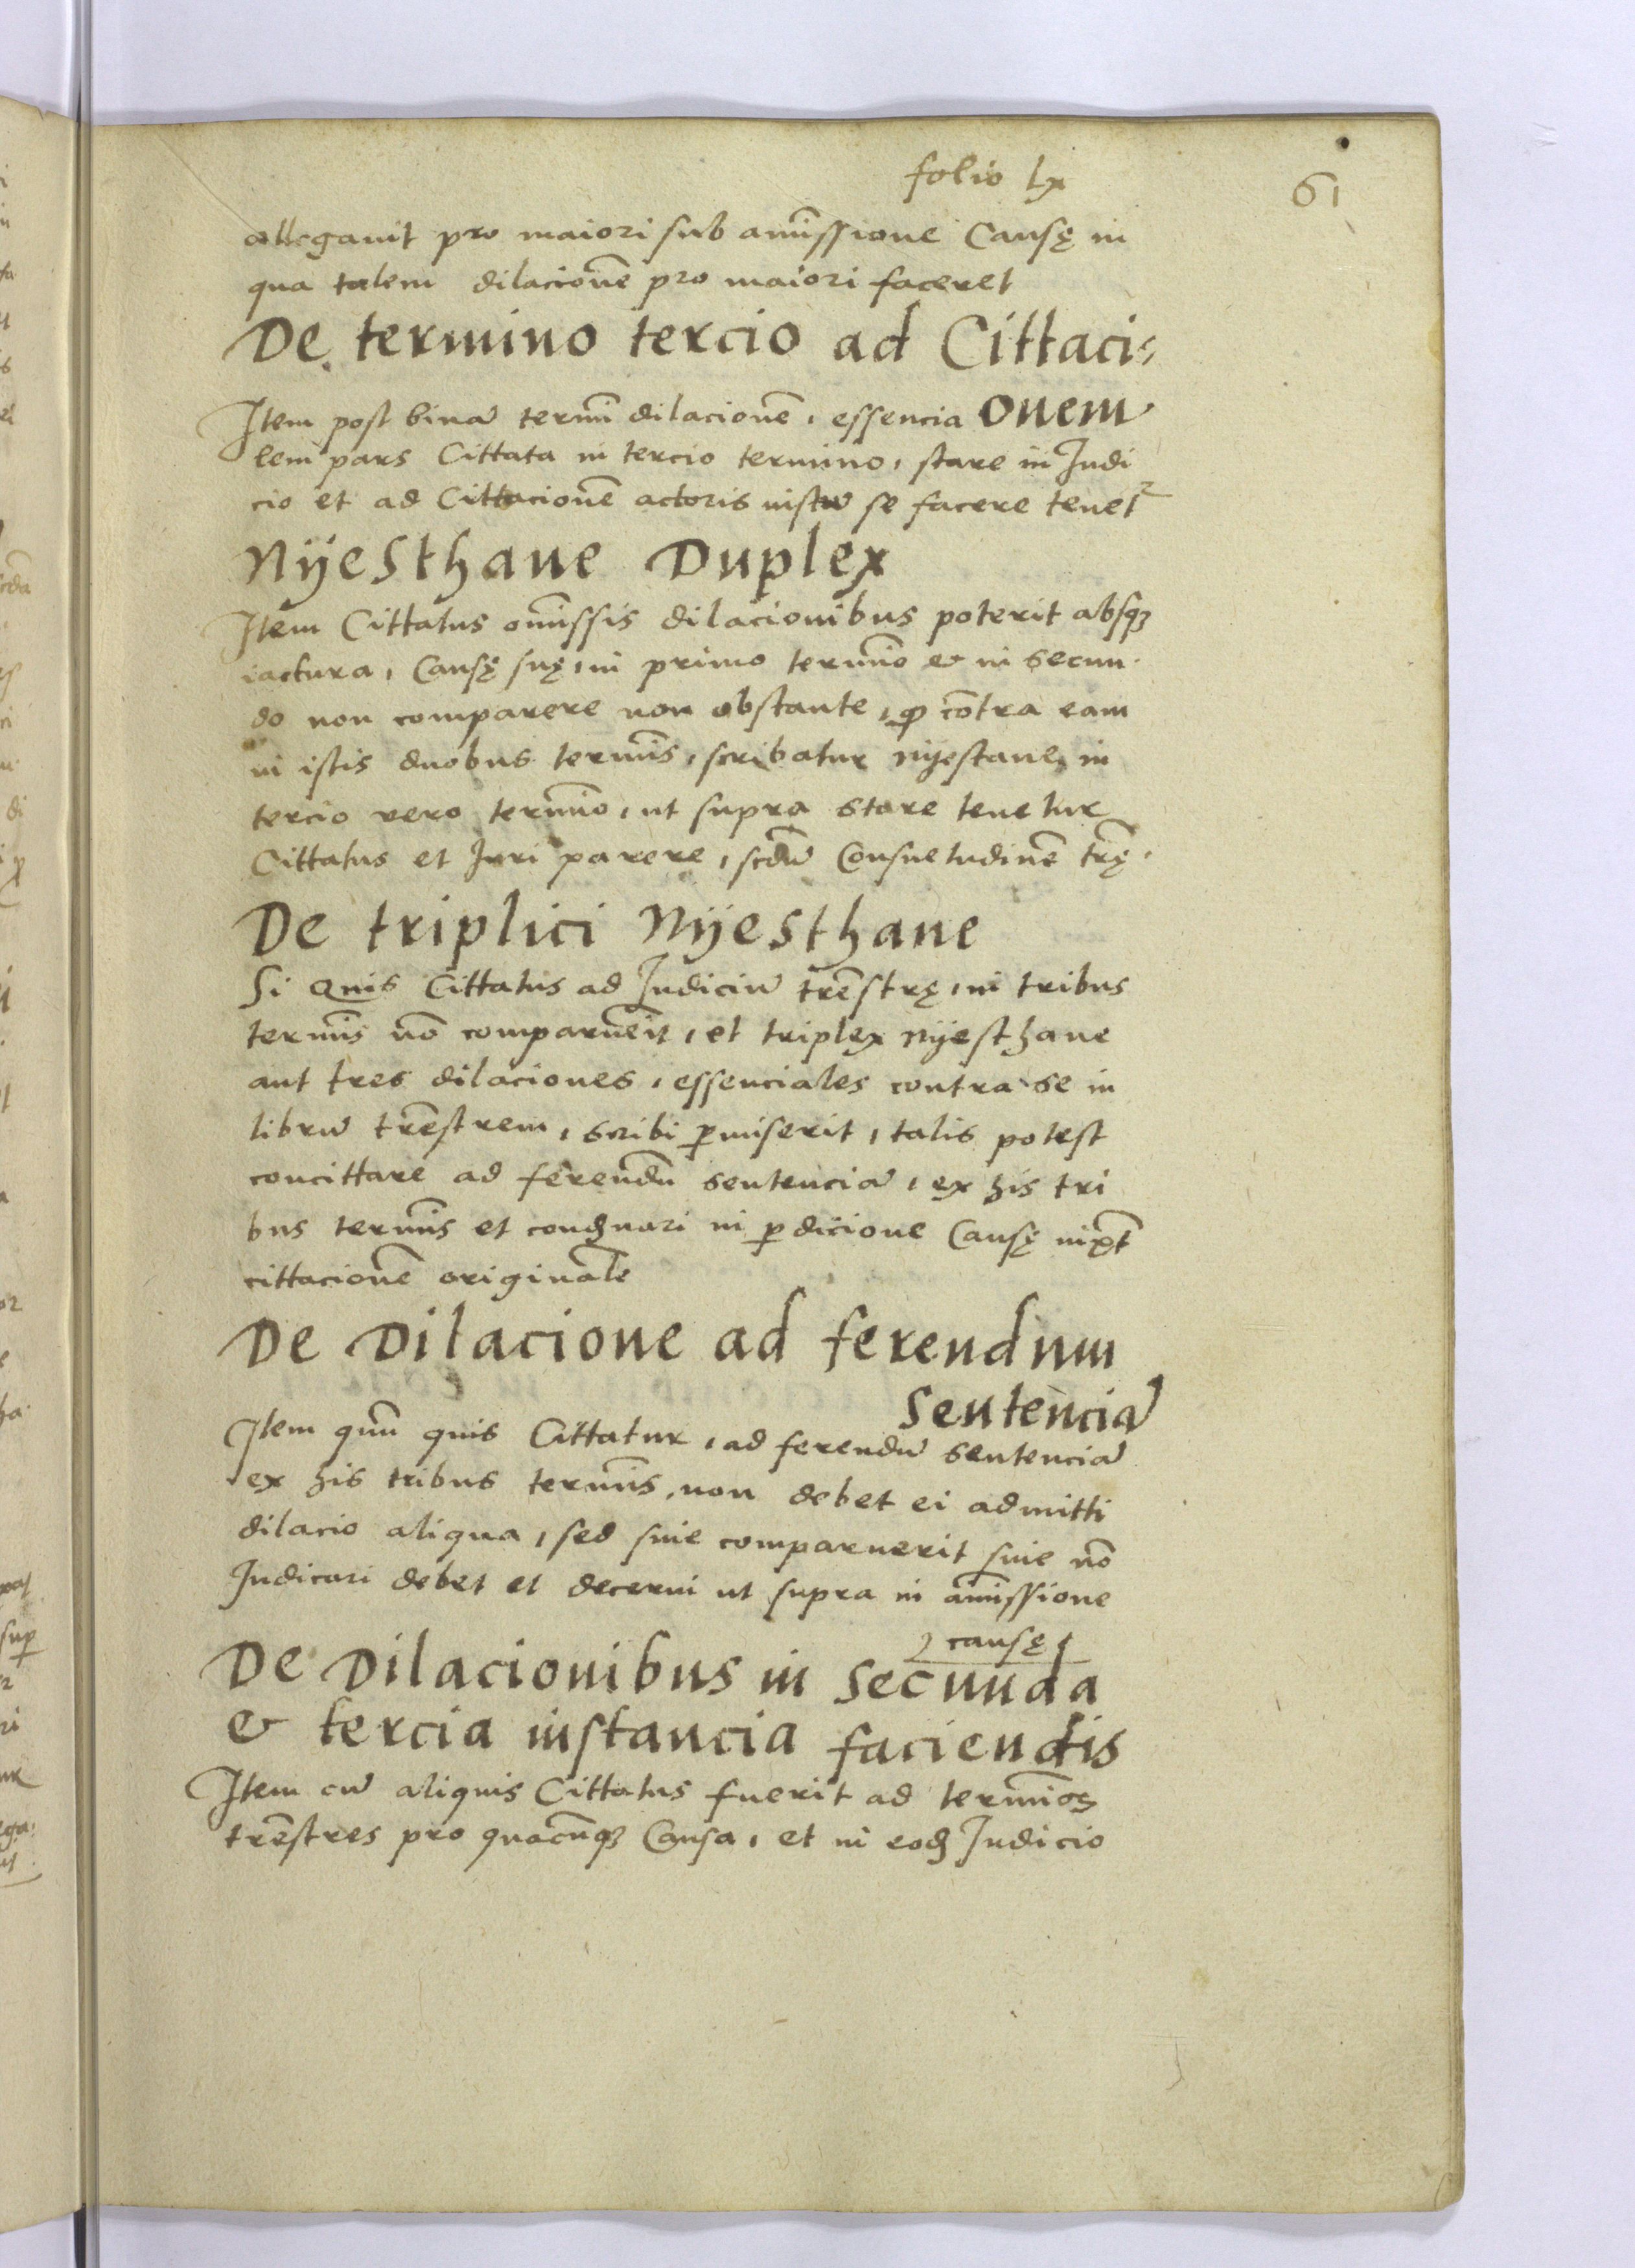 folio lx
61
allegavit pro maiori sub am̄issione Causę in
qua talem dilacionē pro maiori faceret
De termino tercio ad Cittaci-
Item post binā term̄i dilacionē, essencia onem
lem pars Cittata in tercio termino, stare in Judi
cio et ad Cittacionē actoris nistū se facere tenet͛
Nÿesthane Duplex
Item Cittatus om̄issis dilacionibus poterit absqꝫ
iactura, Causę suę, in primo term̄io & in secun
do non comparere non obstante, ꝙ cōtra eam
in istis duobus term̄is, scribatur nÿestane in
tercio vero term̄io, ut supra stare tenetur
Cittatus et Juri parere, scdū Consuetudinē trę̄.
De triplici Nÿesthane
Si Quis Cittatus ad Judiciū trēstrę, in tribus
term̄is nō comparueīt, et triplex nÿesthane
aut tres dilaciones, essenciales contra se in
librū trēstrem, scribi ꝑmiserit, talis potest
concittare ad ferendū sentenciā, ex his tri
bus term̄is et condꝫnari in ꝑdicione Causę iuxt̄
cittacionē originalē
De Dilacione ad ferendum
Sentenciā
Item quū quis Cittatur, ad ferendū sentenciā
ex his tribus term̄is, non debet ei admitti
dilacio aliqua, sed siue comparuerit siue nō
Judicari debet et decerni ut supra in am̄issione
causę
De Dilacionibus in Secunda
& tercia instancia faciendis
Item cū aliquis Cittatus fuerit ad term̄ios
trēstres pro quacūqꝫ Causa, et in eodꝫ Judicio